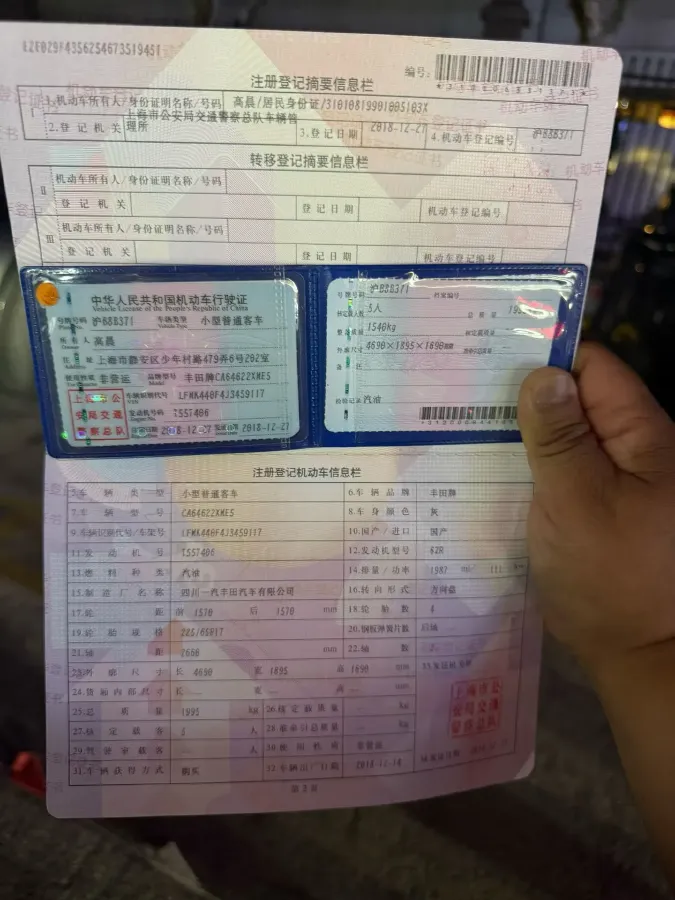 注册登记摘要信息栏
编号:
1.机动车所有人/身份证明名称/号码 高晨/居民身份证/31010819901005103X
2.登记机关 上海市公安局交通警察总队车辆管理所 3.登记日期 2018-12-27 4.机动车登记编号 沪B8B371
转移登记摘要信息栏
II 机动车所有人/身份证明名称/号码
登记机关 登记日期 机动车登记编号
III 机动车所有人/身份证明名称/号码
登记机关 登记日期 机动车登记编号
中华人民共和国机动车行驶证
Vehicle License of the People's Republic of China
号牌号码 沪B8B371 车辆类型 小型普通客车
Vehicle Type
所有人 高晨
Owner
住址 上海市静安区少年村路479弄6号202室
Address
使用性质 非营运 品牌型号 丰田牌CA64622XME5
Model
上海市公安局交通警察总队
车辆识别代号 LFMK440F4J3459117
VIN
发动机号码 T557406
注册日期 2018-12-27 发证日期 2018-12-27
号牌号码 沪B8B371 档案编号
核定载人数 5人 总质量
整备质量 1540kg 核定载质量
外廓尺寸 4690×1895×1690
备注
检验记录 汽油
注册登记机动车信息栏
5.车辆类型 小型普通客车 6.车辆品牌 丰田牌
7.车辆型号 CA64622XME5 8.车身颜色 灰
9.车辆识别代号/车架号 LFMK440F4J3459117 10.国产/进口 国产
11.发动机号 T557406 12.发动机型号 6ZR
13.燃料种类 汽油 14.排量/功率 1987 ml/ 111
15.制造厂名称 四川一汽丰田汽车有限公司 16.转向形式 方向盘
17.轮距 前 1570 后 1570 mm 18.轮胎数 4
19.轮胎规格 225/65R17 20.钢板弹簧片数 后轴
21.轴距 2660 mm 22.轴数
23.外廓尺寸 长 4690 宽 1895 高 1690 mm
24.货厢内部尺寸 长 宽 高 mm
25.总质量 1995 kg 26.核定载质量 kg
27.核定载客 5 人 28.准牵引总质量 kg
29.驾驶室载客 人 30.使用性质 非营运
31.车辆获得方式 购买 32.车辆出厂日期 2018-12-14
33.发证机关章
上海市公安局交通警察总队
第 2 页